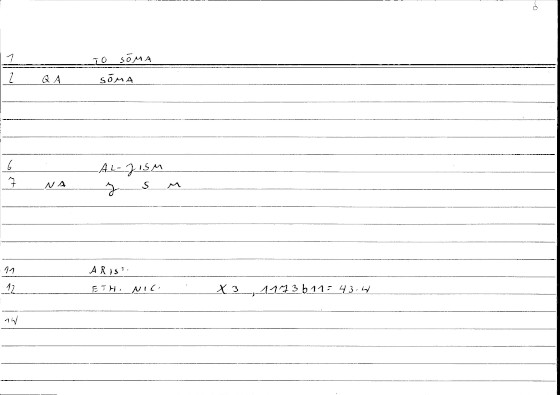 1 TO SŌMA
2 QA SŌMA
6 AL-JISM
7 NA J S M
11 ARIST.
12 ETH. NIC. X 3, 1173b11 = 43.4
14